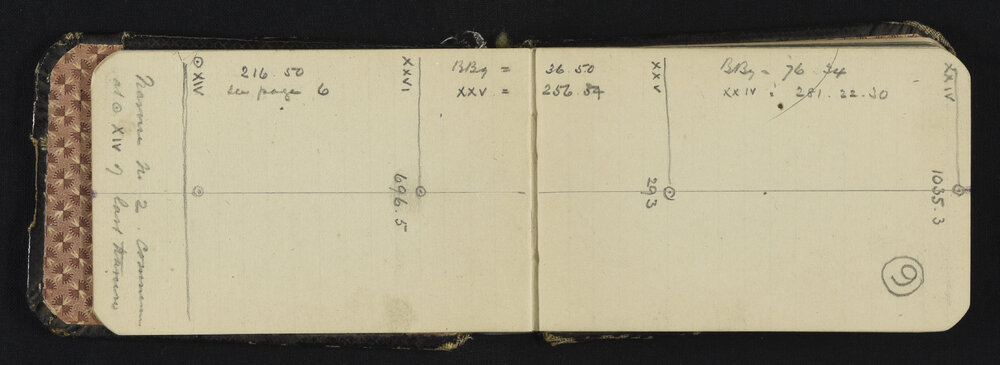 No 2
at ⊙ XIV of last
⊙ XIV
216.50
see page 6
XXVI
696.5
BBg = 36.50
XXV = 256.54
XXV
293
BBg = 76.34
XXIV : 281.22.30
XXIV
1035.3
9